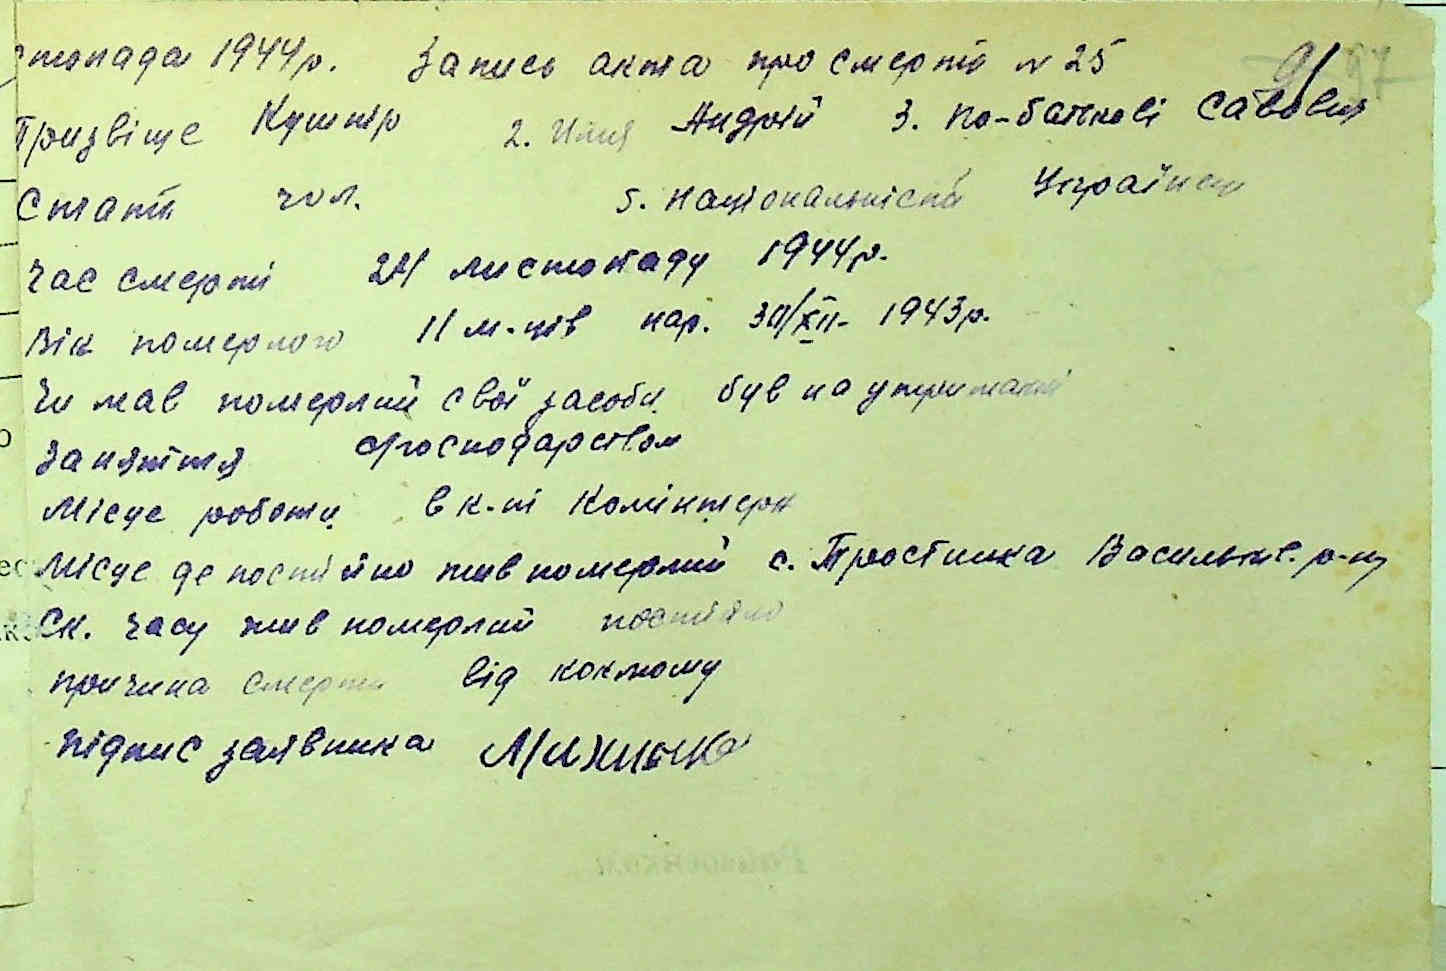 стопада 1944р. Запись акта про смерть № 25
Призвіще Кушнір 2. Имя Андрій 3. по-батькові Савович
Стать чол. 5. національність Українец
Час смерті 24 листопаду 1944р.
Вік померлого 11 м-ців нар. 30/XII- 1943р.
Чи мав померлий свої засоби був на утриманні
Заняття господарством
Місце роботи в к-пі Комінтерн
Місце де постійно жив померлий с. Тростинка Васильків. р-ну
Ск. часу жив померлий постійно
причина смерти від коклюму
підпис заявника